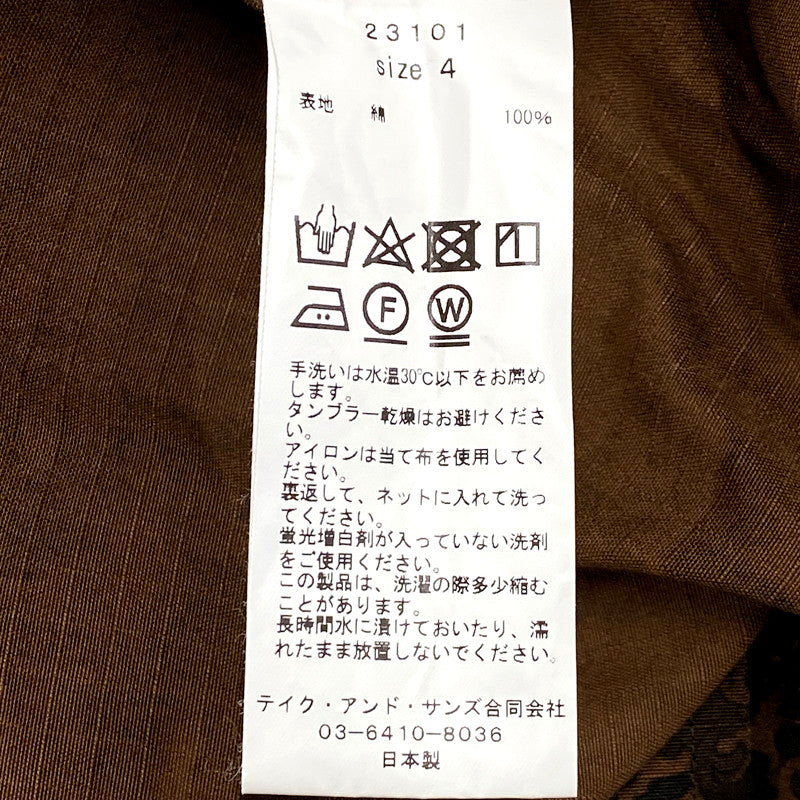 23101
size 4
表地 綿 100%
F W
手洗いは水温30℃以下をお薦め
します。
タンブラー乾燥はお避けくださ
い。
アイロンは当て布を使用してく
ださい。
裏返して、ネットに入れて洗っ
てください。
蛍光増白剤が入っていない洗剤
をご使用ください。
この製品は、洗濯の際多少縮む
ことがあります。
長時間水に漬けておいたり、濡
れたまま放置しないでください。
テイク・アンド・サンズ合同会社
03-6410-8036
日本製